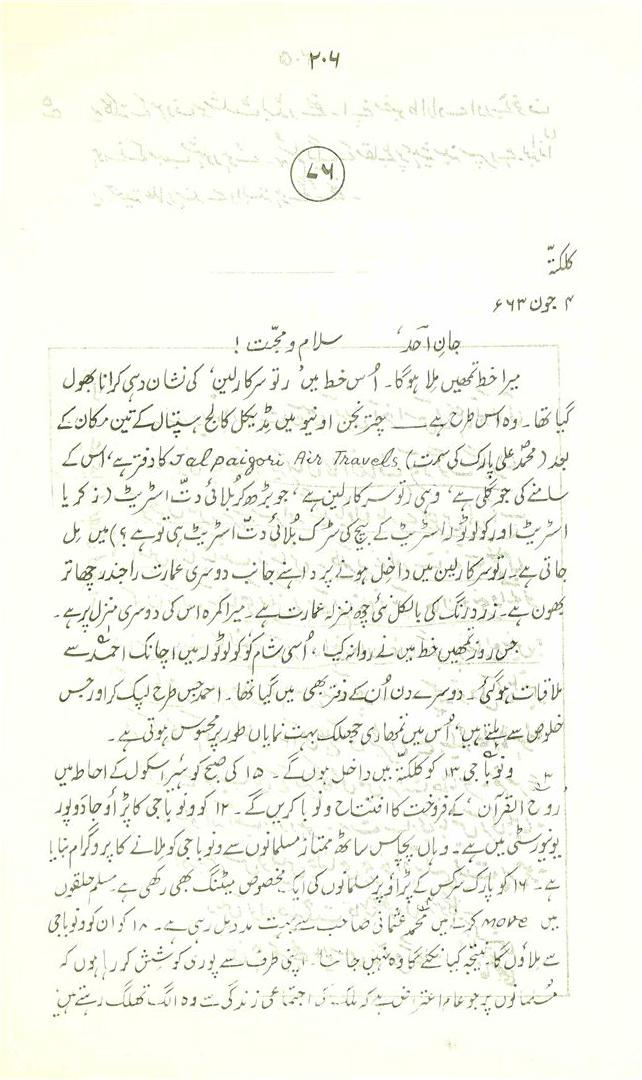 ۲۰۶
۷۶
کلکتّہ
۴ جون ۶۶۳
جانِ احمد، سلام و محبّت !
میرا خط تمھیں ملا ہوگا۔ اُس خط میں ’رتو سرکار لین‘ کی نشان دہی کرانا بھول
گیا تھا۔ وہ اس طرح ہے ــــــ چترنجن اونیو میں مڈیکل کالج ہسپتال کے تین مکان کے
بعد (محمد علی پارک کی سمت) Jalpaigori Air Travels کا دفتر ہے، اس کے
سامنے کی جو گلی ہے، وہی رتو سرکار لین ہے، جو بڑھ کر بلائی دتّ اسٹریٹ (زکریا
اسٹریٹ اور کولوٹولہ اسٹریٹ کے بیچ کی سڑک بلائی دتّ اسٹریٹ ہی تو ہے ؟) میں مِل
جاتی ہے۔ رتو سرکار لین میں داخل ہونے پر داہنے جانب دوسری عمارت راجندر چھاتر
بھون ہے۔ زرد رنگ کی بالکل نئی چھ منزلہ عمارت ہے۔ میرا کمرہ اس کی دوسری منزل پر ہے۔
جس روز تمھیں خط میں نے روانہ کیا، اُسی شام کو کولوٹولہ میں اچانک احمد سے
ملاقات ہوگئی۔ دوسرے دن اُن کے دفتر بھی میں گیا تھا۔ احمد جس طرح لپک کر اور جس
خلوص سے ملتے ہیں، اُس میں تمھاری جھلک بہت نمایاں طور پر محسوس ہوتی ہے۔
ونوبا جی ۱۳ کو کلکتّہ میں داخل ہوں گے۔ ۱۵ کی صبح کو ہیر اسکول کے احاطہ میں
’روح القرآن‘ کے فروخت کا افتتاح ونوبا کریں گے۔ ۱۲ کو ونوبا جی کا پڑاو جادوپور
یونیورسٹی میں ہے۔ وہاں پچاس ساٹھ ممتاز مسلمانوں سے ونوبا جی کو ملانے کا پروگرام بنایا
ہے۔ ۱۶ کو پارک سرکس کے پڑاو پر مسلمانوں کی ایک مخصوص میٹنگ بھی رکھی ہے۔ مسلم حلقوں
میں move کرنے میں محمد عثمانی صاحب سے بہت مدد مل رہی ہے۔ ۱۸ کو ان کو ونوبا جی
سے ملاؤں گا۔ نتیجہ کیا نکلے گا وہ نہیں جانتا۔ اپنی طرف سے پوری کوشش کر رہا ہوں کہ
مسلمانوں پر جو عام اعتراض ہے کہ ملک کی اجتماعی زندگی سے وہ الگ تھلگ رہتے ہیں